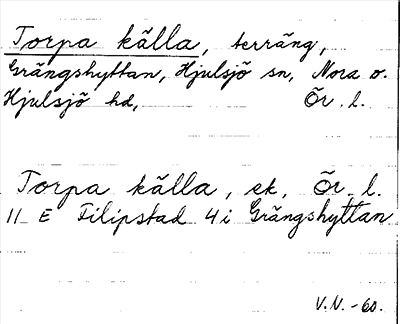 Torpa källa, terräng,
Grängshyttan, Hjulsjö sn, Nora o.
Hjulsjö hd, Ör. l.
Torpa källa, ek. Ör. l.
11 E Filipstad 4 i Grängshyttan
V.N. -60.